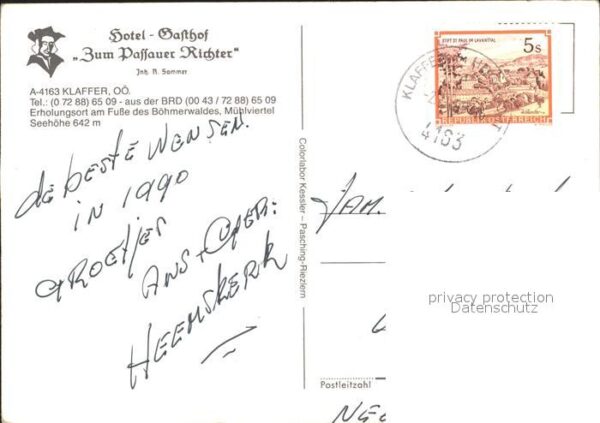 Hotel - Gasthof
„Zum Passauer Richter"
A-4163 KLAFFER, OÖ.
Tel.: (0 72 88) 65 09 - aus der BRD (00 43 / 72 88) 65 09
Erholungsort am Fuße des Böhmerwaldes, Mühlviertel
Seehöhe 642 m
de BESTE WENSEN.
in 1990
GROETJES
ANS +
HEEMSKERK
Colorlabor Kessler – Pasching-Riezlern
STIFT ST. PAUL IM LAVANTTAL
5 S
REPUBLIK ÖSTERREICH
KLAFFER
4163
FAM.
privacy protection
Datenschutz
Postleitzahl